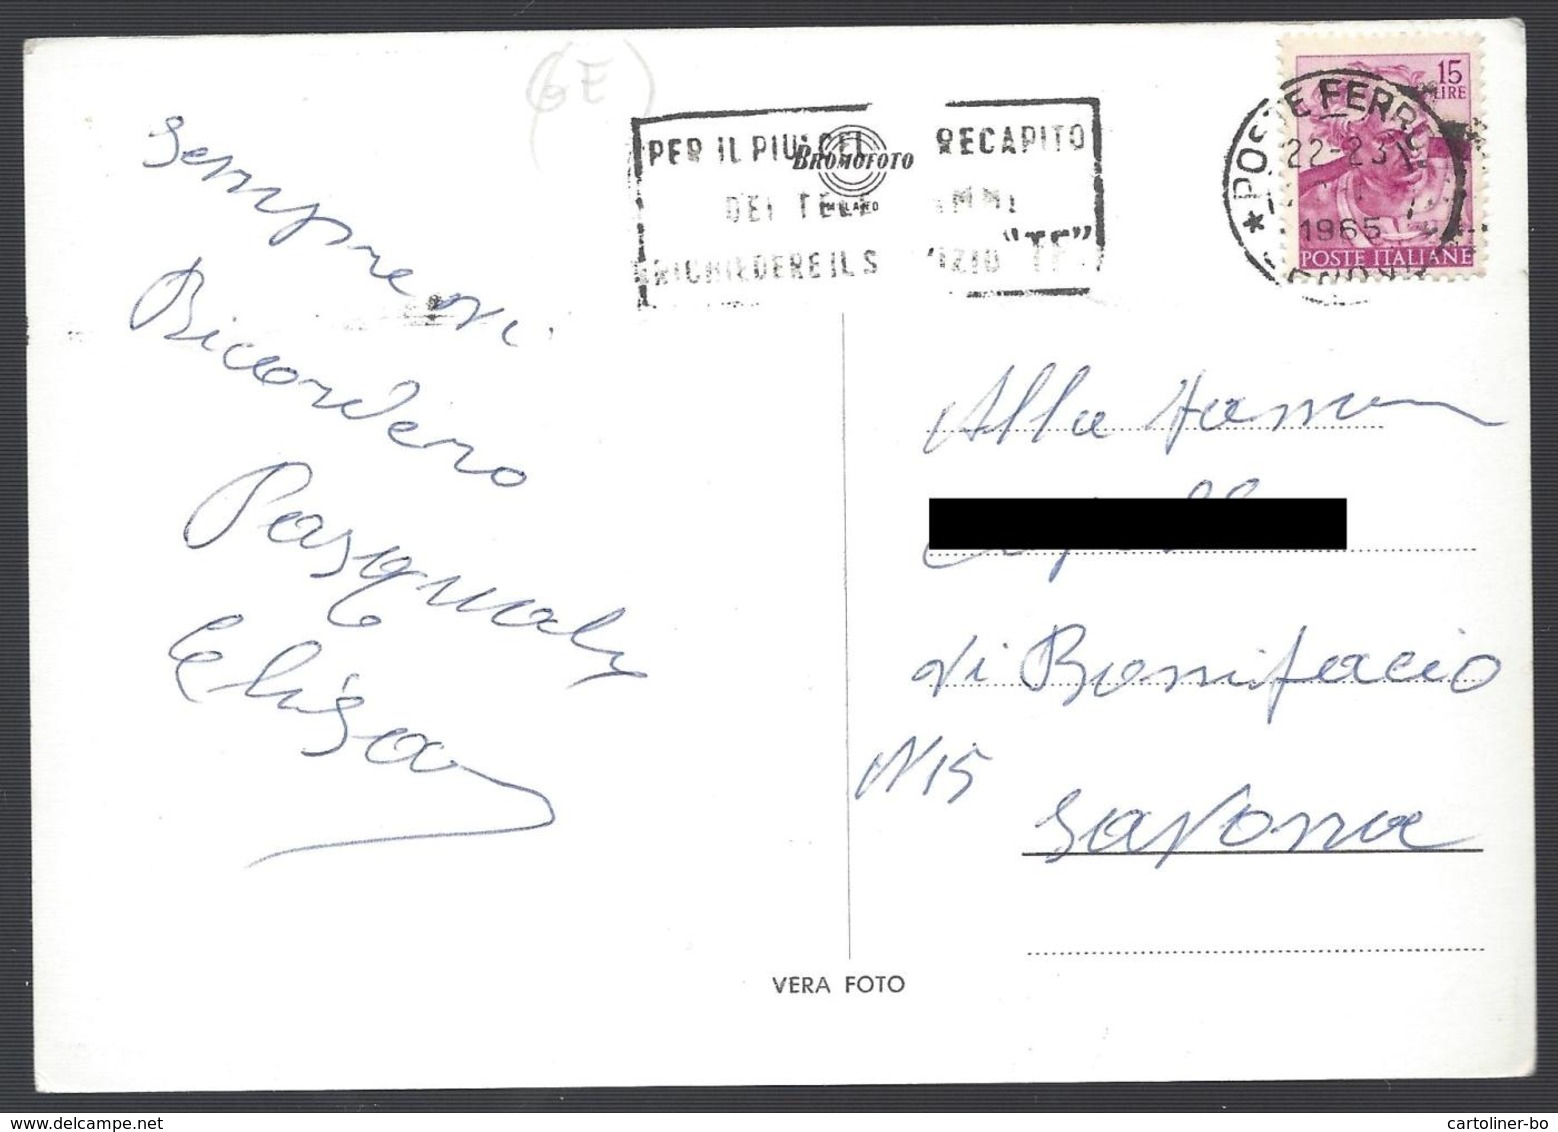 (GE)
Sempre vi
Ricordero
Pasqualy
PER IL PIU' CEL RECAPITO
DEI TELE MMI
RICHIEDERE IL S VIZIO "TE"
BROMOFOTO
MILANO
15
LIRE
POSTE ITALIANE
* POSTE FERR
22-23
1965
Alla
Vi Bonifacio
N 15
Savona
VERA FOTO
cartoliner-bo